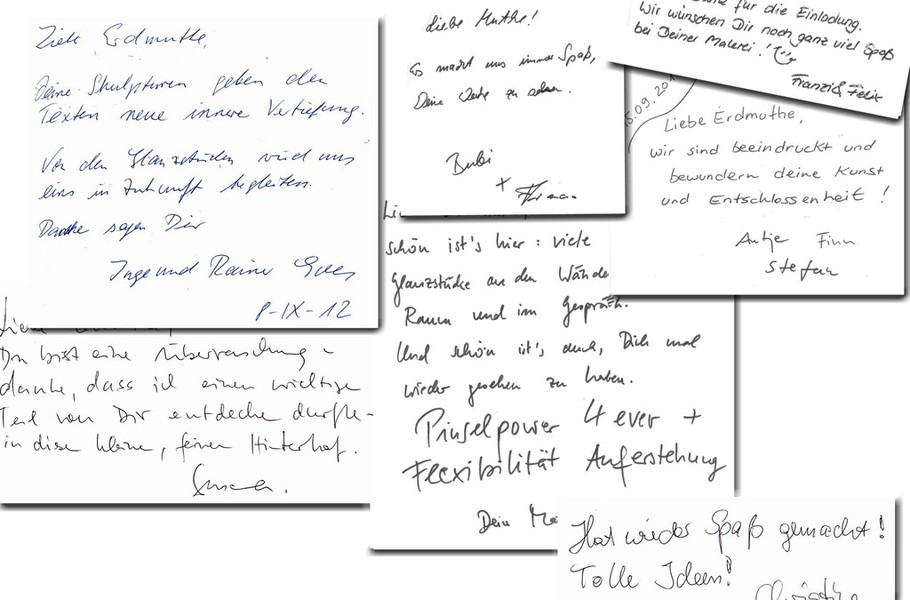 Liebe Erdmuthe,
Deine Skulpturen geben den
Texten neue innere Vertiefung.
Von den Glanzstücken wird uns
eins in Zukunft begleiten.
Danke sagen Dir
Inge und Rainer
8-IX-12
Liebe Muthe!
Es macht uns immer Spaß,
Deine Werke zu sehen.
Bubi
+
für die Einladung.
Wir wünschen Dir noch ganz viel Spaß
bei Deiner Malerei!
Franzi & Felix
15.09.20
Liebe Erdmuthe,
wir sind beeindruckt und
bewundern deine Kunst
und Entschlossenheit!
Antje Finn
Stefan
Du bist eine Überraschung -
danke, dass ich einen wichtige
Teil von Dir entdecke durfte -
in diese kleine, feinen Hinterhof.
schön ist's hier: viele
Glanzstücke an den Wände
Raum und im Gespräch.
Und schön ist's auch, Dich mal
wieder gesehen zu haben.
Pinselpower 4 ever +
Flexibilität Auferstehung
Dein
Hat wieder Spaß gemacht!
Tolle Ideen!
Christine